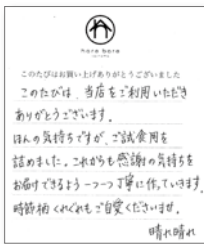 hare bare
このたびはお買い上げありがとうございました
このたびは、当店をご利用いただき
ありがとうございます。
ほんの気持ちですが、ご試食用を
詰めました。これからも感謝の気持ちを
お届けできるよう一つ一つ丁寧に作っていきます。
時節柄くれぐれもご自愛くださいませ。
晴れ晴れ